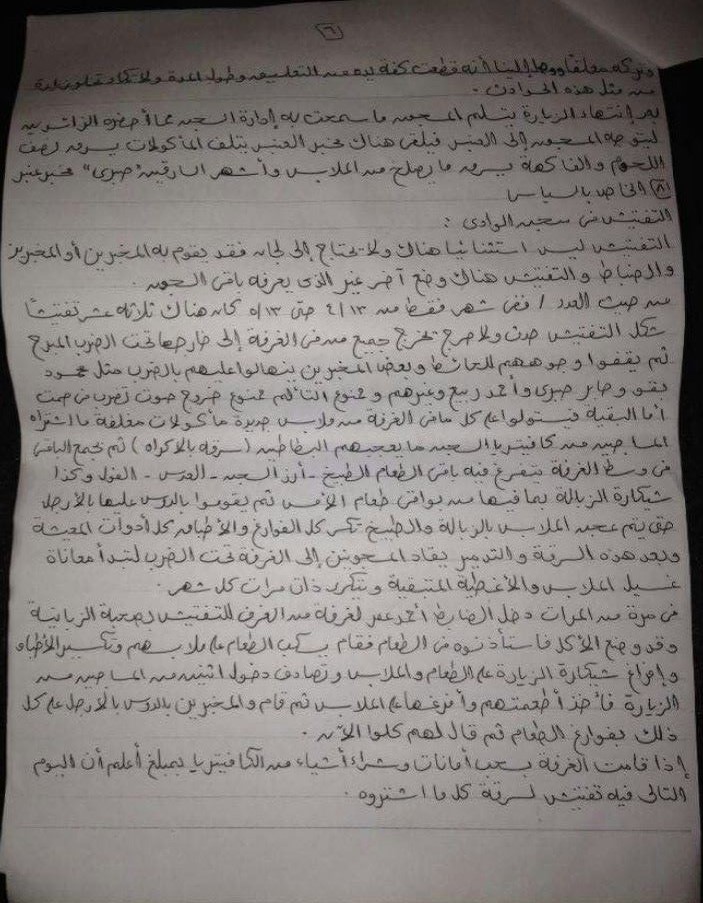 ٦
وتركه معلقاً ووصل إلينا أنه قطعت كفة يده من التعليق وطول المدة ولا تكاد تخلو زيارة
من مثل هذه الحوادث .
بعد إنتهاء الزيارة يتسلم المسجون ما سمحت به إدارة السجن مما أحضره الزائرين
ليتوجه المسجون إلى العنبر فيلقى هناك مخبر العنبر يتلف المأكولات يسرق نصف
اللحوم والفاكهة يسرق ما يصلح من الملابس وأشهر السارقين "صبرى" مخبر عنبر
٨ الخاص بالسياسى
التفتيش فى سجن الوادى :
التفتيش ليس استثنائيا هناك ولا يحتاج إلى لجان فقد يقوم به المخبرين أو المخبرين
والضباط والتفتيش هناك وضع آخر غير الذى يعرفه باقى السجون .
من حيث العدد / ففى شهر فقط من ٤/١٣ حتى ٥/١٣ كان هناك ثلاثة عشر تفتيشاً
شكل التفتيش حدث ولا حرج يخرج جميع من فى الغرفة إلى خارجها تحت الضرب المبرح
ثم يقفوا وجوههم للحائط وبعض المخبرين ينهالوا عليهم بالضرب مثل محمود
بقو وصابر صبرى وأحمد ربيع وغيرهم وممنوع التألم ممنوع خروج صوت تضرب فى صمت
أما البقية فيستولوا على كل ما فى الغرفة من ملابس جديدة مأكولات مغلفة ما اشتراه
المساجين من كافيتريا السجن ما يعجبهم البطاطين (سرقة بالاكراه) ثم تجمع الباقى
فى وسط الغرفة يتفرغ فيه باقى الطعام الطبيخ - أرز السجن - العدس - الفول وكذا
شيكارة الزبالة بما فيها من بواقى طعام الأمس ثم يقوموا بالدوس عليها بالأرجل
حتى يتم عجن الملابس بالزبالة والطبيخ تكسر كل الفوارغ والأطباق كل أدوات المعيشة
وبعد هذه السرقة والتدمير يقاد المسجونين إلى الغرفة تحت الضرب لتبدأ معاناة
غسيل الملابس والأغطية المتبقية ويتكرر ذلك مرات كل شهر .
فى مرة من المرات دخل الضابط أحمد عمر لغرفة من الغرف للتفتيش بصحبة الزبانية
وقد وضع الأكل فاستأذنوه فى الطعام فقام بكب الطعام على ملابسهم وتكسير الأطباق
وإفراغ شيكارة الزيارة على الطعام والملابس وتصادف دخول اثنين من المساجين من
الزيارة فأخذ أطعمتهم وأفرغها على الملابس ثم قام والمخبرين بالدوس بالأرجل على كل
ذلك بفوارغ الطعام ثم قال لهم كلوا الآن .
إذا قامت الغرفة بسحب أمانات وشراء أشياء من الكافيتريا بمبلغ أعلم أن اليوم
التالى فيه تفتيش لسرقة كل ما اشتروه .